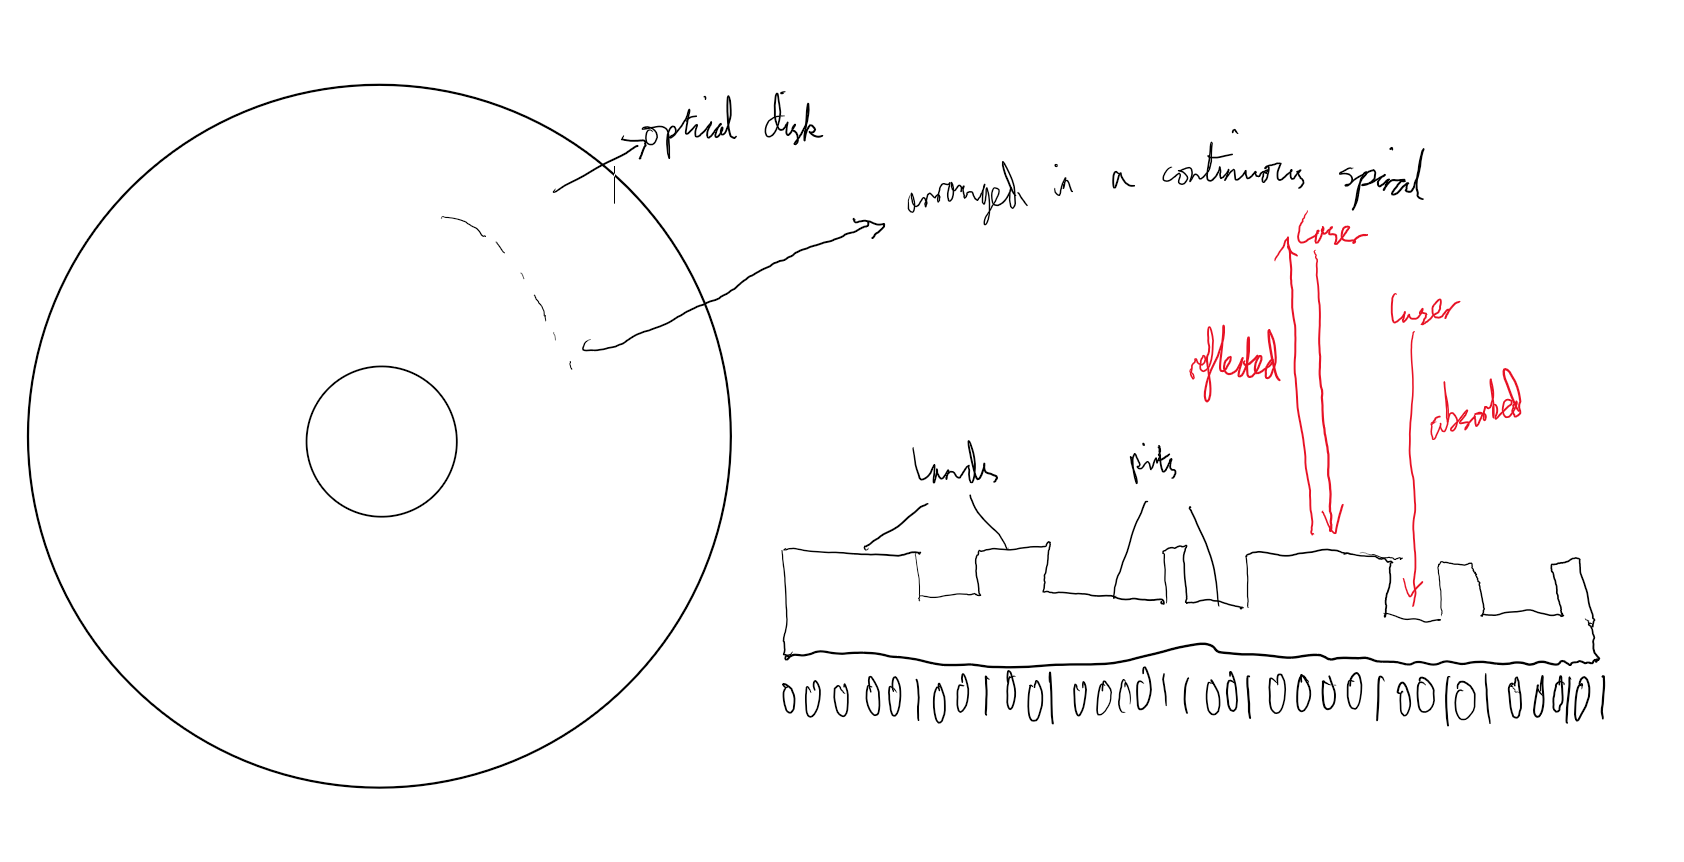 optical disk
arranged in a continuous spiral
laser
laser
reflected
absorbed
Lands
pits
0000010010010000110010000100101000101